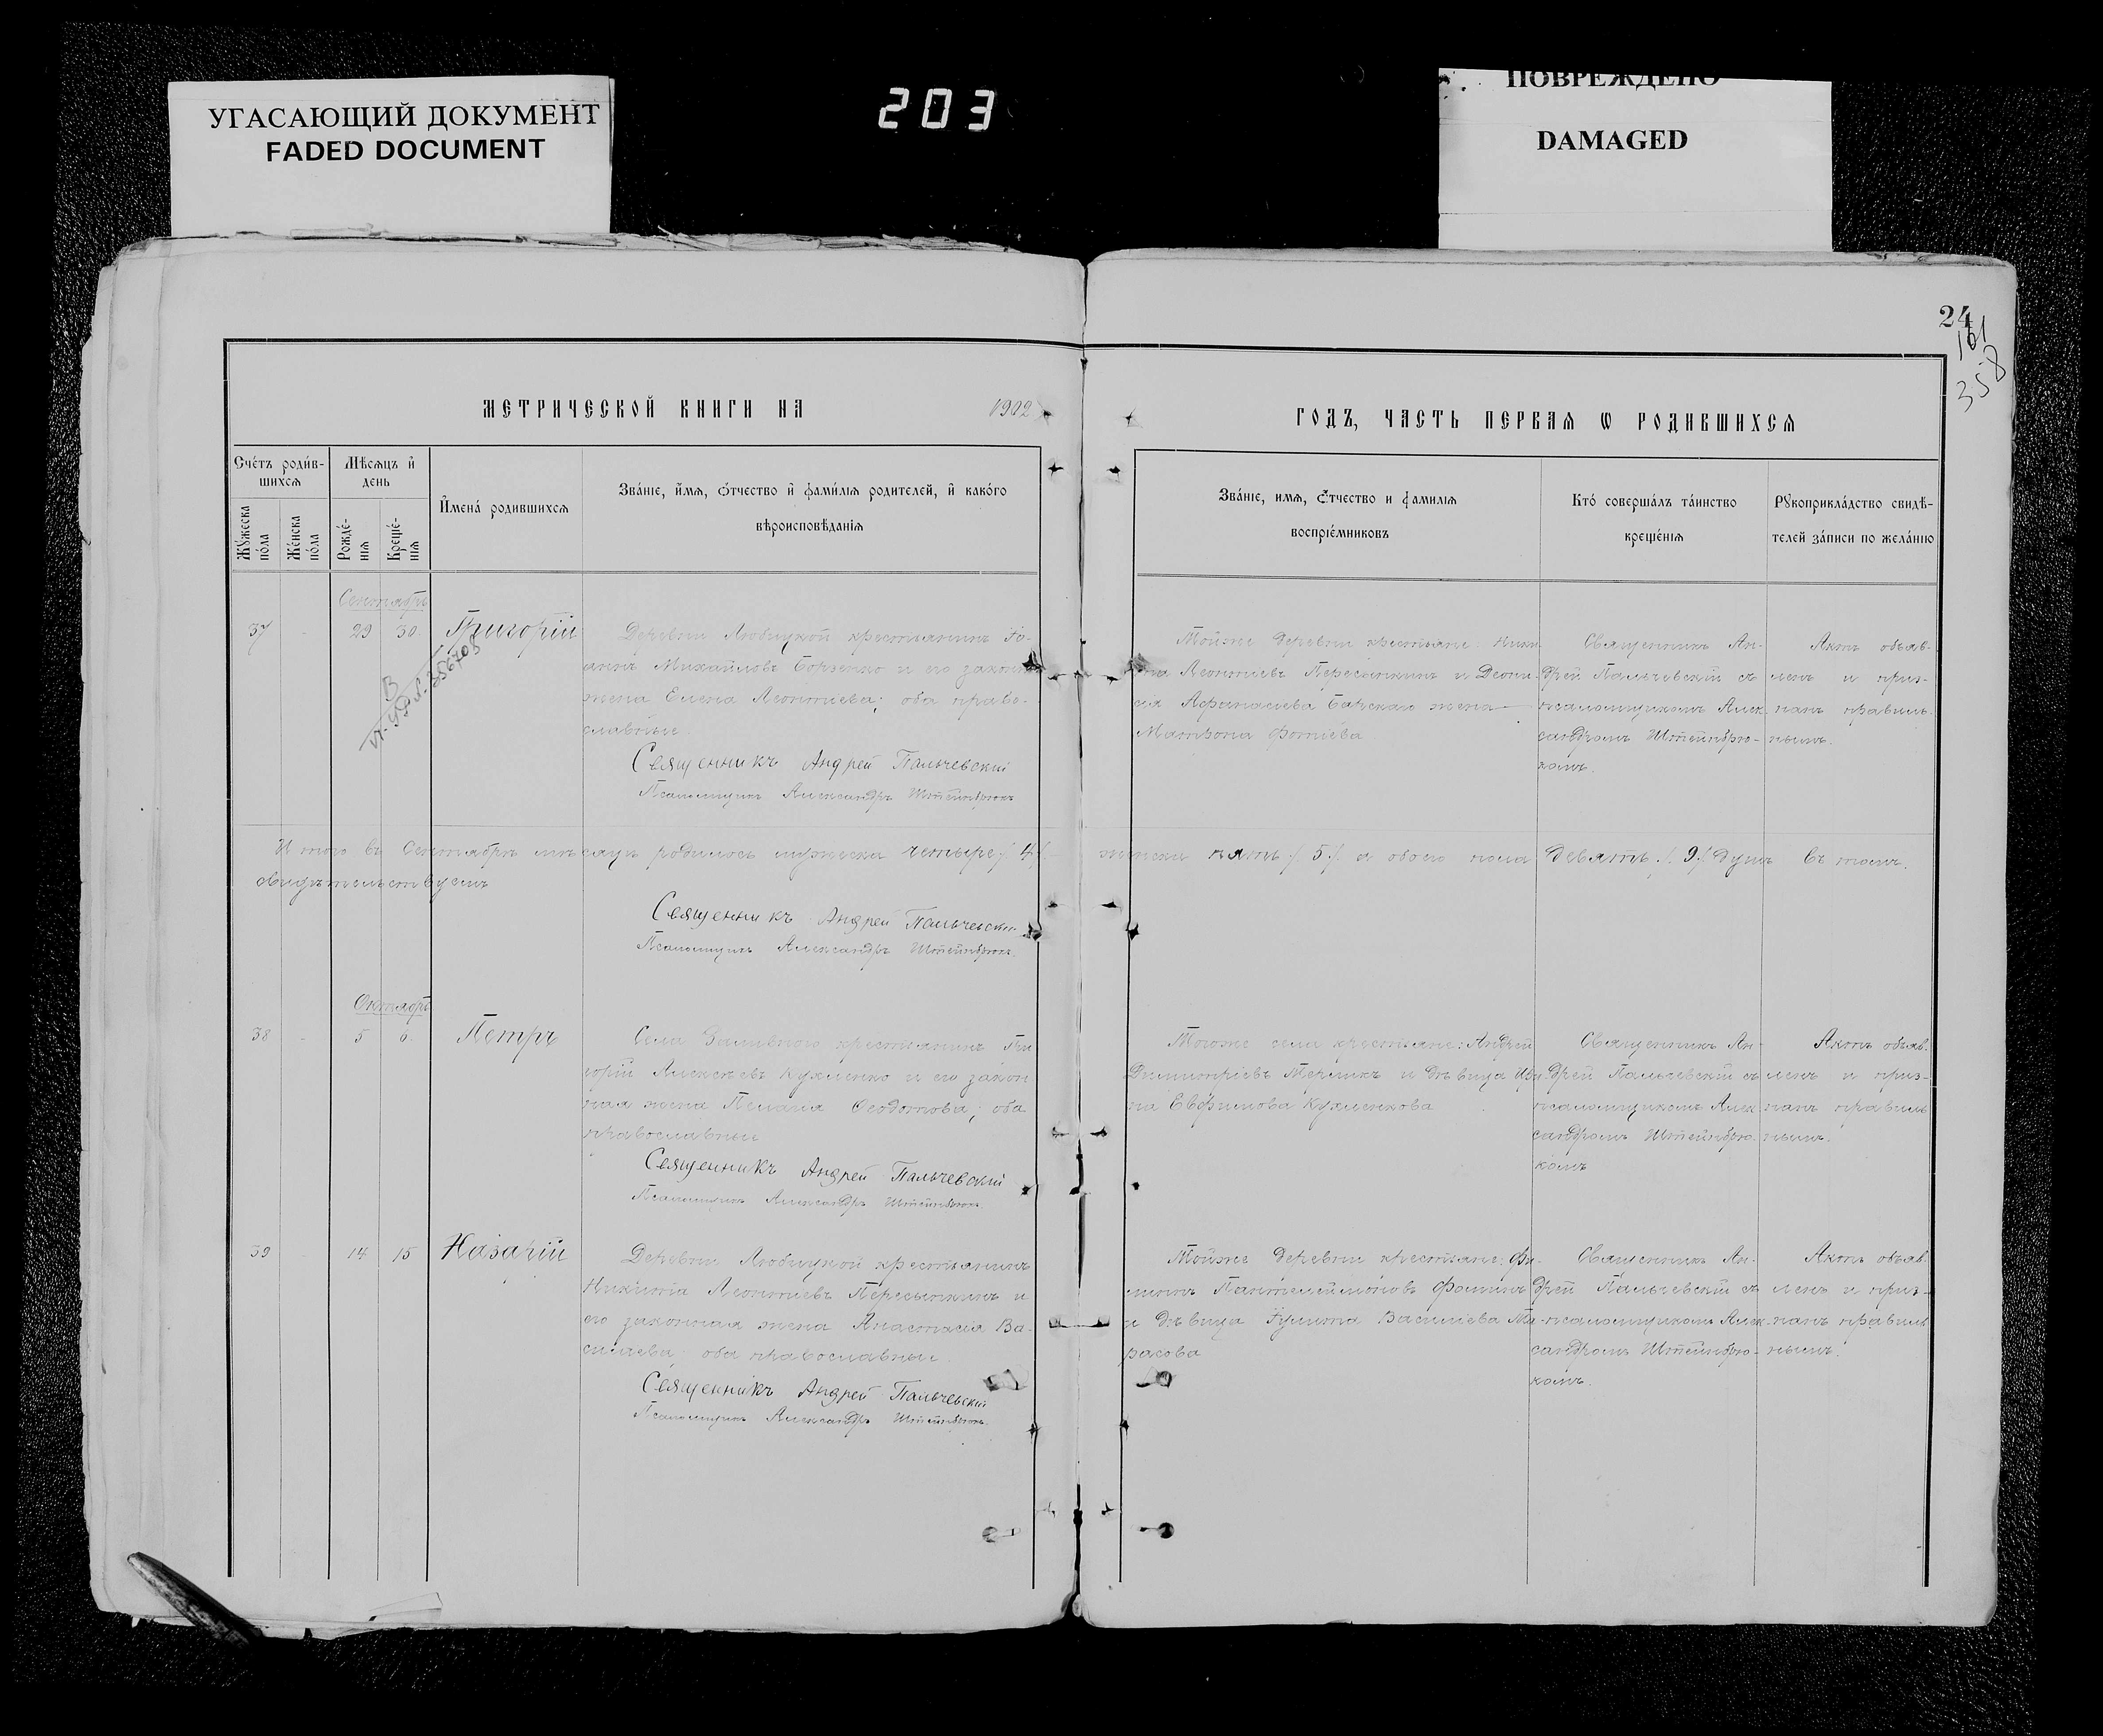 УГАСАЮЩИЙ ДОКУМЕНТ
FADED DOCUMENT
203
ПОВРЕЖДЕНО
DAMAGED
24
101
358
МЕТРИЧЕСКОЙ КНИГИ НА 1902
ГОДЪ, ЧАСТЬ ПЕРВАЯ Ѡ РОДИВШИХСЯ
Счéтъ роди́в-
шихся
Мѣсяцъ и҆
день
Мꙋ́жеска
по́ла
Же́нска
по́ла
Рожде́-
нїя
Креще́-
нїя
И҆мена́ родившихся
Зва́нїе, и҆́мя, ѻ҆́тчество и҆ фами́лїя родителей, и҆ како́го
вѣроисповѣ́данїя
Зва́нїе, имя, ѻ҆́тчество и фамилїя
воспрїе́мниковъ
Кто́ соверша́лъ та́инство
креще́нїя
Рꙋкоприкла́дство свидѣ́-
телей за́писи по жела́нїю
Сентябрь
37
29
30
Григорій
Деревни Любицкой крестьянинъ Іо-
аннъ Михайловъ Борзенко и его законн
жена Елена Леонтіева; оба право-
славные.
Священникъ Андрей Пальчевскій
Псаломщикъ Александръ Штейнбрюкъ
Тойже деревни крестьяне: Ники
та Леонтіевъ Пересыпкинъ и
Афанасіева жена
Матрона Фотіева
Священникъ Ан-
дрей Пальчевскій съ
псаломщикомъ Алек-
сандромъ Штейнбрю-
комъ.
Актъ объяв-
ленъ и приз-
нанъ правиль-
нымъ.
Итого въ Сентябрѣ мѣсяцѣ родилось мужеска четыре /. 4 /. женска пять /. 5 /. а обоего пола девять /. 9 /. душъ въ томъ.
свидѣтельствуемъ
Священникъ Андрей Пальчевскій
Псаломщикъ Александръ Штейнбрюкъ.
Октябрь
38
5
6
Петръ
Села Заливного крестьянинъ Гри
горій Алексѣевъ Кухленко и его закон
ная жена Пелагія Ѳеодотова; оба
православные
Священникъ Андрей Пальчевскій
Псаломщикъ Александръ Штейнбрюкъ.
Тогоже села крестьяне: Андрей
Димитріевъ и дѣвица Ири
на Евфимова Кухленкова
Священникъ Ан-
дрей Пальчевскій съ
псаломщикомъ Алек
сандромъ Штейнбрю-
комъ
Актъ объяв-
ленъ и приз-
нанъ правиль
нымъ.
39
14
15
Назарій
Деревни Любицкой крестьянинъ
Никита Леонтіевъ Пересыпкинъ и
его законная жена Анастасія Ва-
силіева оба православные
Священникъ Андрей Пальчевскій
Псаломщикъ Александръ Штейнбрюкъ.
Тойже деревни крестьяне: Фи-
липпъ Пантелеймоновъ Фоминъ
и дѣвица Іулита Василіева
расова
Священникъ Ан-
дрей Пальчевскій съ
псаломщикомъ Алек-
сандромъ Штейнбрю-
комъ.
Актъ объяв
ленъ и приз-
нанъ правиль
нымъ.